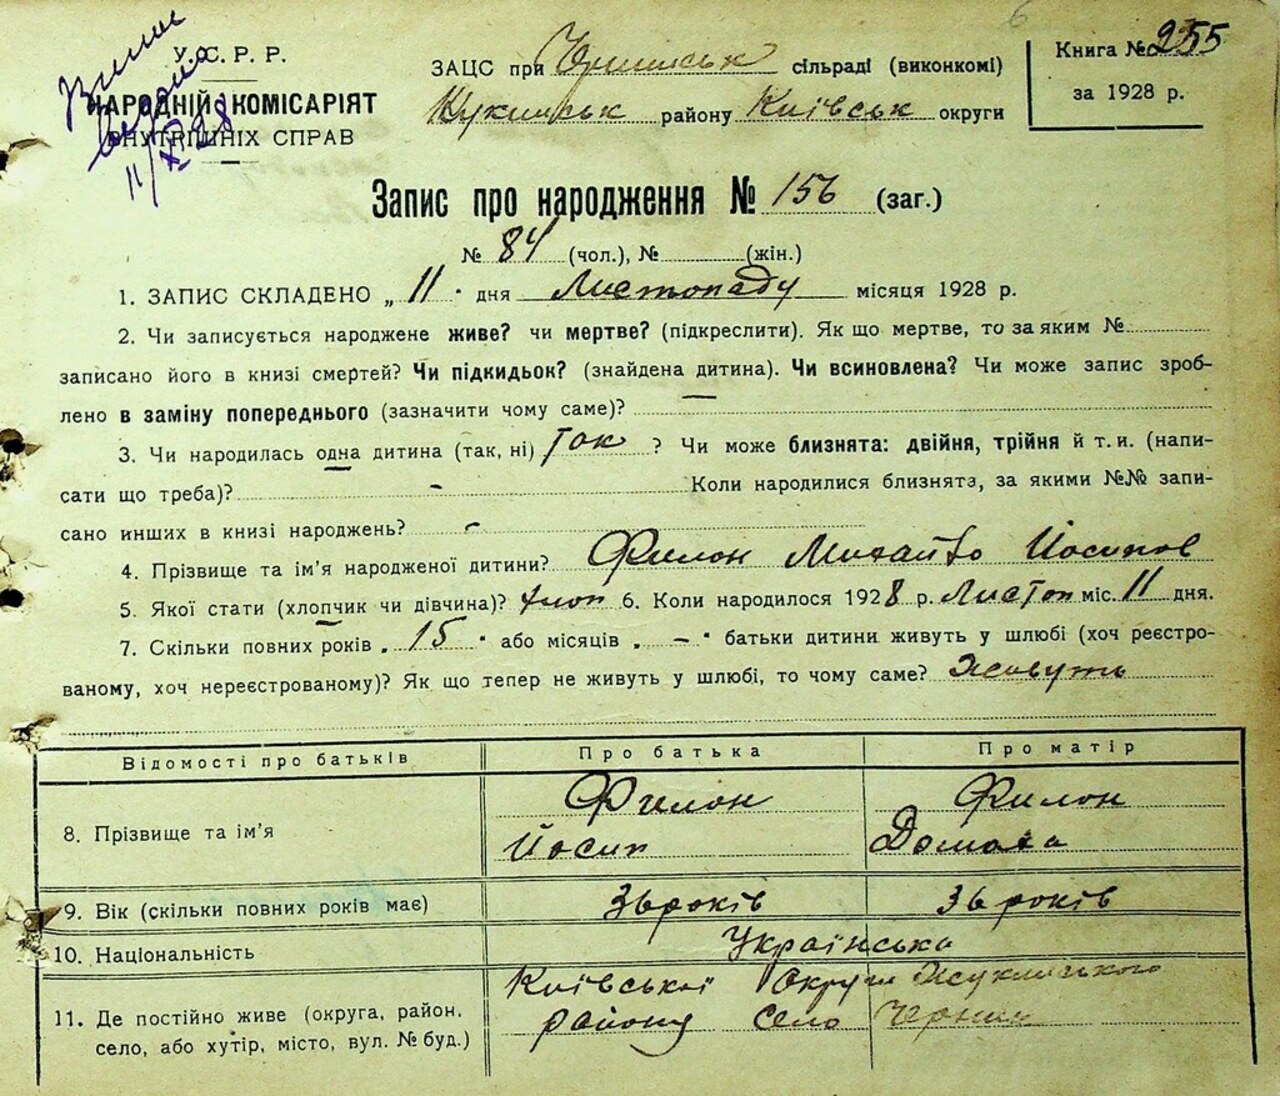 У.С.Р.Р.
НАРОДНІЙ КОМІСАРІЯТ
ВНУТРІШНІХ СПРАВ
11/XI 28
ЗАЦС при сільраді (виконкомі)
району Київськ округи
Книга № 255
за 1928 р.
Запис про народження № 156 (заг.)
№ 84 (чол.), № (жін.)
1. ЗАПИС СКЛАДЕНО „ 11 " дня Листопаду місяця 1928 р.
2. Чи записується народжене живе? чи мертве? (підкреслити). Як що мертве, то за яким №
записано його в книзі смертей? Чи підкидьок? (знайдена дитина). Чи всиновлена? Чи може запис зроб-
лено в заміну попереднього (зазначити чому саме)? —
3. Чи народилась одна дитина (так, ні) Так ? Чи може близнята: двійня, трійня й т. и. (напи-
сати що треба)? - Коли народилися близнята, за якими №№ запи-
сано инших в книзі народжень? -
4. Прізвище та ім'я народженої дитини? Филон Михайло Йосипов
5. Якої стати (хлопчик чи дівчина)? хлоп 6. Коли народилося 1928 р. Листоп міс. 11 дня.
7. Скільки повних років „ 15 " або місяців „ - " батьки дитини живуть у шлюбі (хоч реєстро-
ваному, хоч нереєстрованому)? Як що тепер не живуть у шлюбі, то чому саме? Живуть
Відомості про батьків Про батька Про матір
8. Прізвище та ім'я Филон Йосип Филон Домаха
9. Вік (скільки повних років має) 36 років 36 років
10. Національність Українська
11. Де постійно живе (округа, район, село, або хутір, місто, вул. № буд.) Київської Округи району село